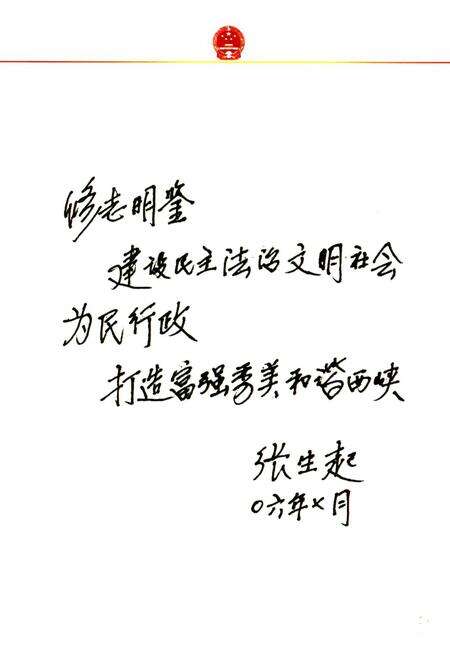 修志明鉴
建设民主法治文明社会
为民行政
打造富强秀美和谐西峡
张生起
〇六年×月